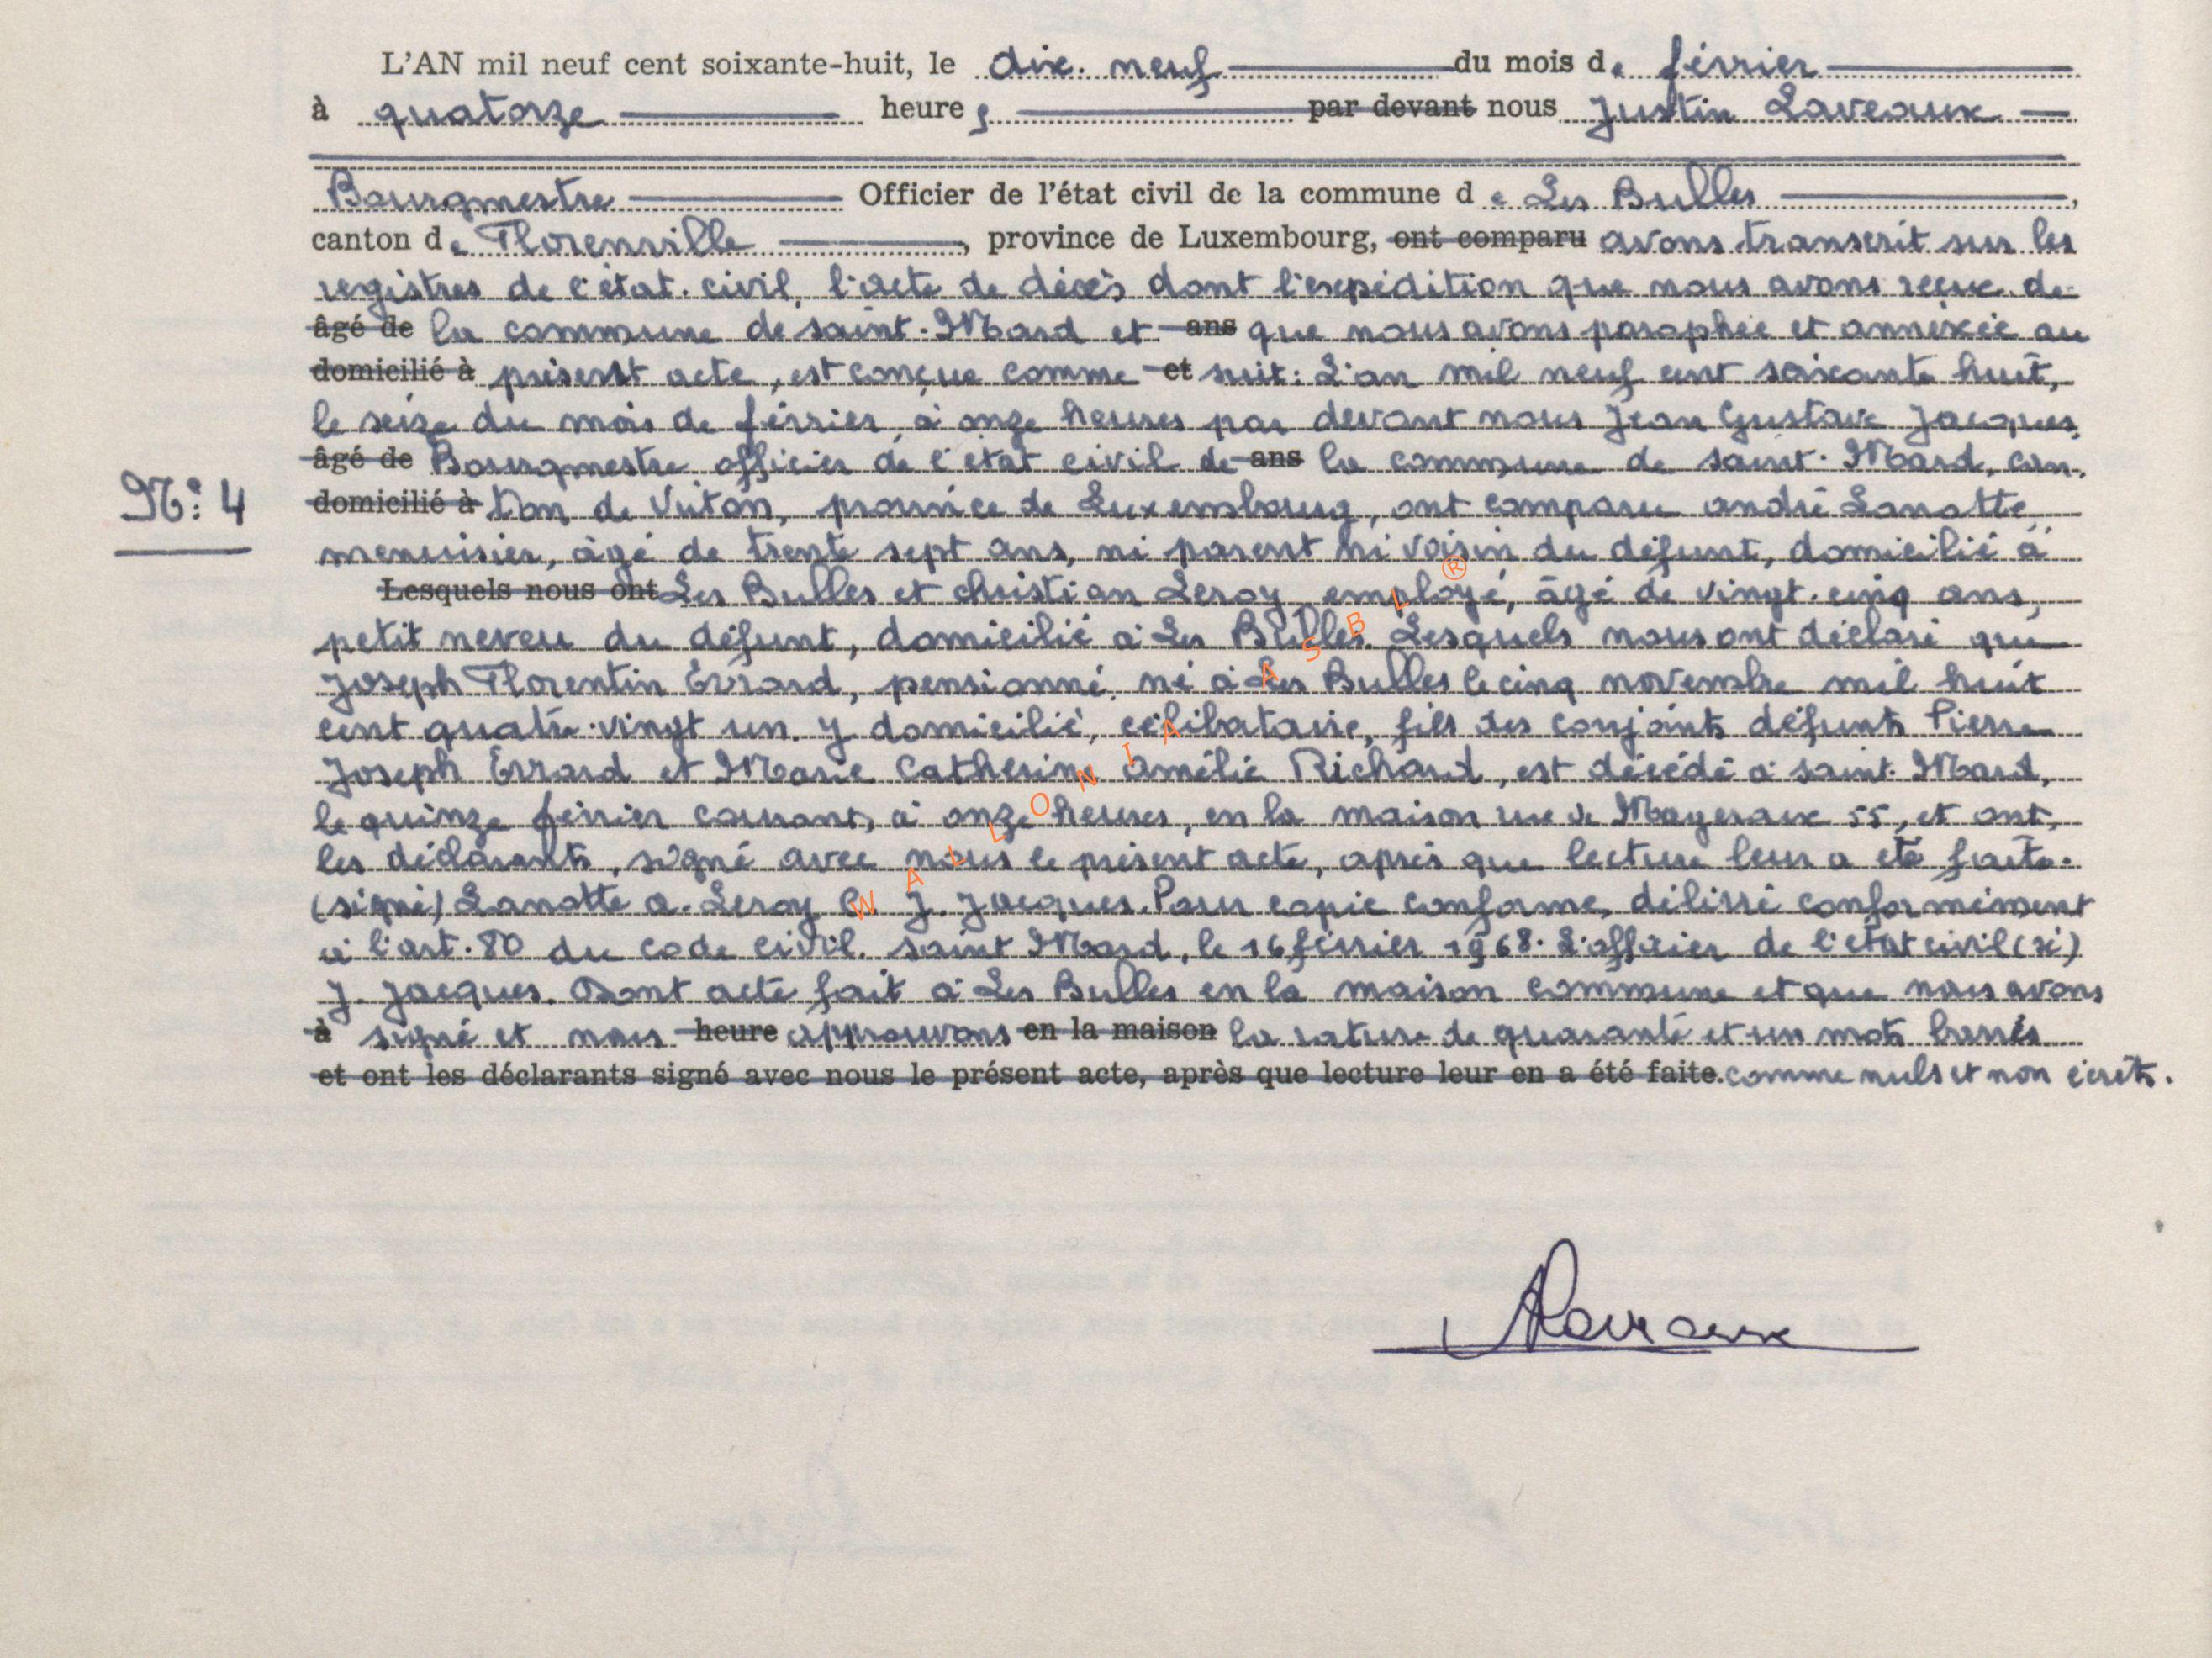 L'AN mil neuf cent soixante-huit, le dix. neuf du mois de février
à quatorze heures par devant nous Justin Laveaux
Bourgmestre Officier de l'état civil de la commune de Les Bulles,
canton de Florenville, province de Luxembourg, ont comparu avons transcrit sur les
registres de l'état-civil, l'acte de décès dont l'expédition que nous avons reçue de
âgé de la commune de saint-Mard et ans que nous avons paraphée et annexée au
domicilié à présent acte, est conçue comme et suit: L'an mil neuf cent soixante huit,
le seize du mois de février, à onze heures par devant nous Jean Gustave Jacques,
âgé de Bourgmestre officier de l'état civil de ans la commune de saint-Mard, can-
N°: 4
domicilié à ton de Virton, province de Luxembourg, ont comparu andré Lanotte,
menuisier, âgé de trente sept ans, ni parent ni voisin du défunt, domicilié à
Lesquels nous ont Les Bulles et christian Leroy, employé, âgé de vingt-cinq ans,
petit neveu du défunt, domicilié à Les Bulles. Lesquels nous ont déclaré que
Joseph Florentin Evrard, pensionné, né à Les Bulles le cinq novembre mil huit
cent quatre-vingt un. y domicilié, célibataire, fils des conjoints défunts Pierre
Joseph Evrard et Marie Catherine amélie Richard, est décédé à saint-Mard,
le quinze février courant, à onze heures, en la maison rue de Mageroux 55, et ont,
les déclarants, signé avec nous le présent acte, après que lecture leur a été faite.
(signé) Lanotte a. Leroy C. J. Jacques. Pour copie conforme, délivré conformément
à l'art. 80 du code civil. saint Mard, le 16 février 1968. L'officier de l'état civil (sé)
J. Jacques. Dont acte fait à Les Bulles en la maison commune et que nous avons
à signé et nous heure approuvons en la maison la rature de quarante et un mots barrés
et ont les déclarants signé avec nous le présent acte, après que lecture leur en a été faite. comme nuls et non écrits.
Laveaux
WALLONIA ASBL ®